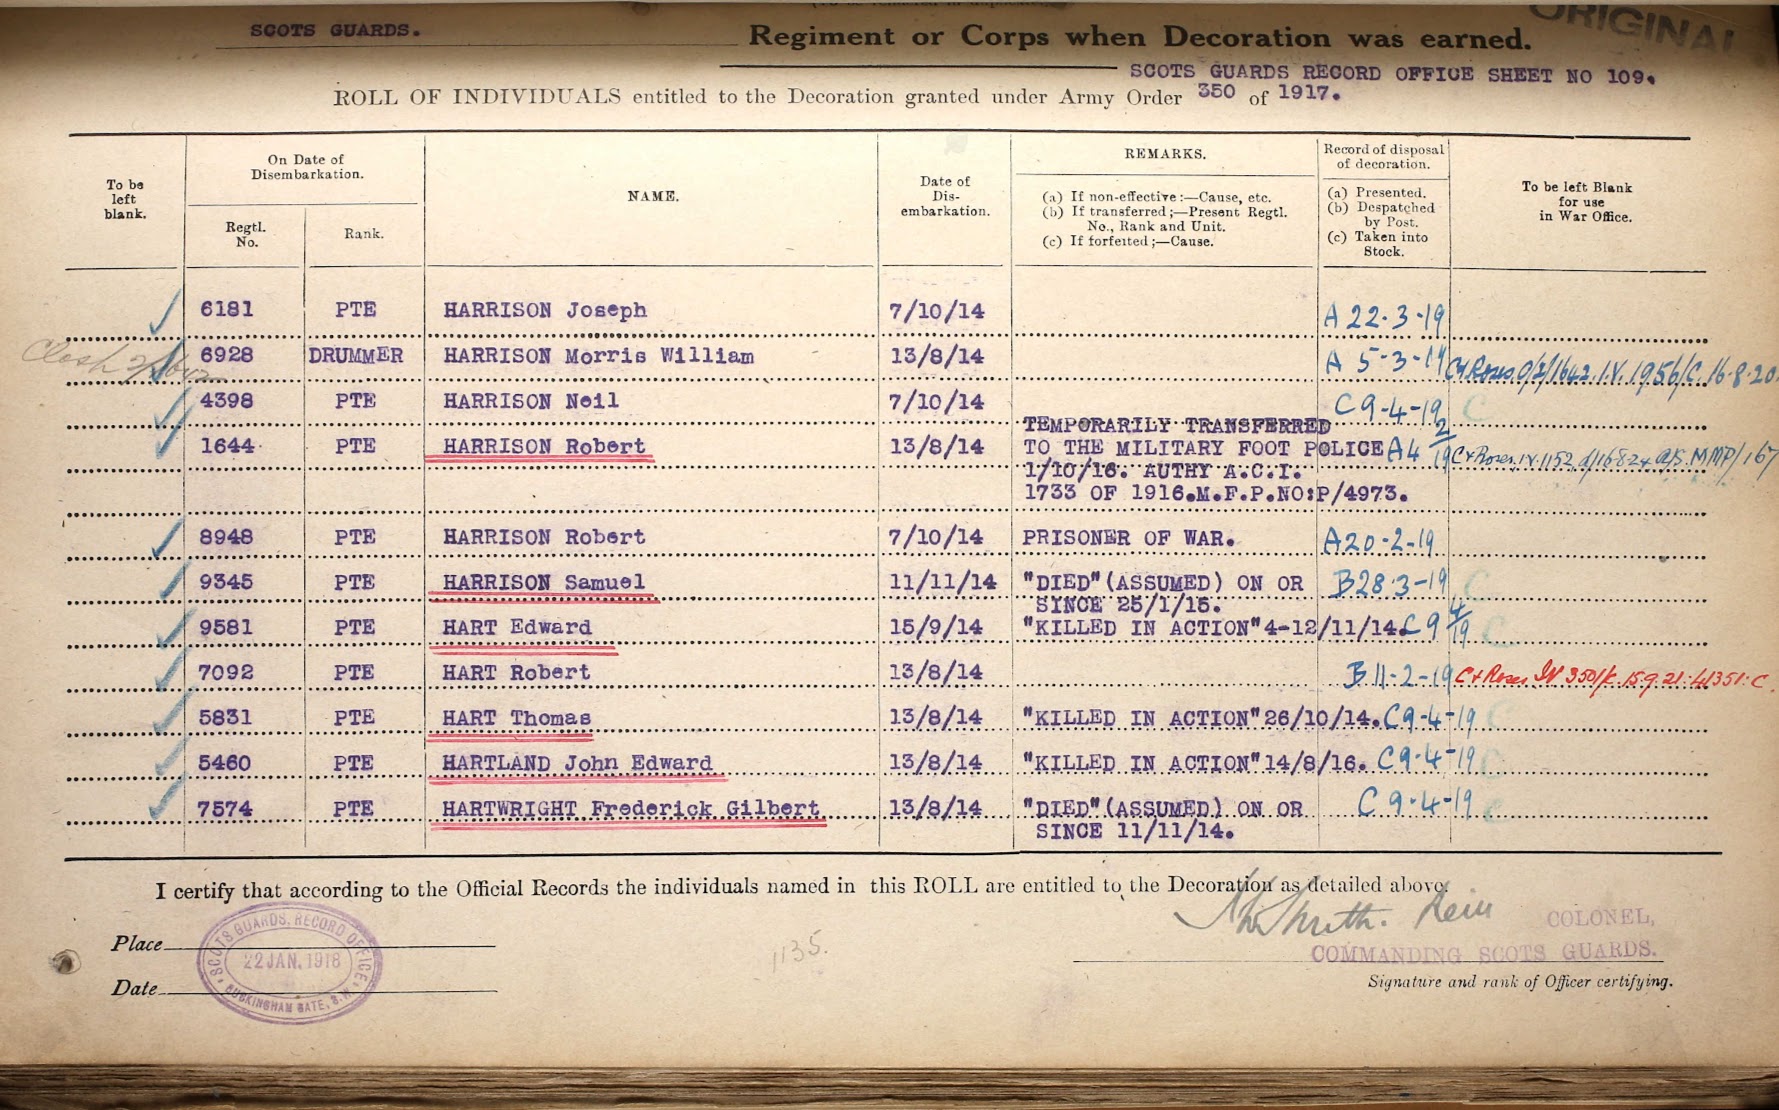 ORIGINAL
SCOTS GUARDS. Regiment or Corps when Decoration was earned.
SCOTS GUARDS RECORD OFFICE SHEET NO 109.
ROLL OF INDIVIDUALS entitled to the Decoration granted under Army Order 350 of 1917.
To be left blank.
On Date of Disembarkation.
Regtl. No.
Rank.
NAME.
Date of Dis-embarkation.
REMARKS.
(a) If non-effective:—Cause, etc.
(b) If transferred;—Present Regtl. No., Rank and Unit.
(c) If forfeited;—Cause.
Record of disposal of decoration.
(a) Presented.
(b) Despatched by Post.
(c) Taken into Stock.
To be left Blank for use in War Office.
6181 PTE HARRISON Joseph 7/10/14 A 22-3-19
6928 DRUMMER HARRISON Morris William 13/8/14 A 5-3-19 C & Roses 1956/C 16-8-20
4398 PTE HARRISON Neil 7/10/14 C 9-4-19 C
1644 PTE HARRISON Robert 13/8/14 TEMPORARILY TRANSFERRED
TO THE MILITARY FOOT POLICE A 4 2/19 C & Roses MMP/167
1/10/16. AUTHY A.C.I.
1733 OF 1916.M.F.P.NO:P/4973.
8948 PTE HARRISON Robert 7/10/14 PRISONER OF WAR. A 20-2-19
9345 PTE HARRISON Samuel 11/11/14 "DIED"(ASSUMED) ON OR B 28-3-19 C
SINCE 25/1/15.
9581 PTE HART Edward 15/9/14 "KILLED IN ACTION"4-12/11/14. C 9 4/19 C
7092 PTE HART Robert 13/8/14 B 11-2-19 C & Roses IV 350/K 15.9.21
5831 PTE HART Thomas 13/8/14 "KILLED IN ACTION"26/10/14. C 9-4-19 C
5460 PTE HARTLAND John Edward 13/8/14 "KILLED IN ACTION"14/8/16. C 9-4-19 C
7574 PTE HARTWRIGHT Frederick Gilbert 13/8/14 "DIED"(ASSUMED) ON OR C 9-4-19 C
SINCE 11/11/14.
I certify that according to the Official Records the individuals named in this ROLL are entitled to the Decoration as detailed above.
COLONEL,
COMMANDING SCOTS GUARDS.
Signature and rank of Officer certifying.
Place
Date
SCOTS GUARDS, RECORD OFFICE
22 JAN. 1918
BUCKINGHAM GATE, S.W.
1135.